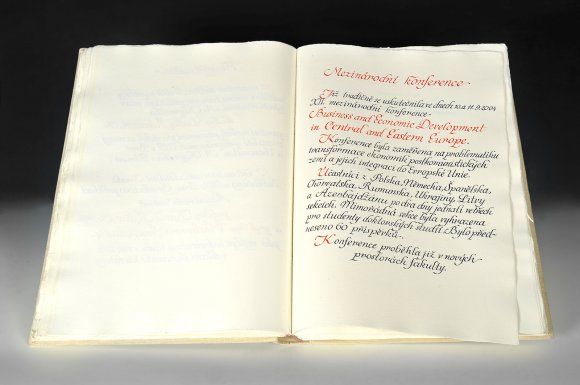 Mezinárodní konference
Již tradičně se uskutečnila ve dnech 10. a 11. 9. 2004
XII. mezinárodní konference
Business and Economic Development
in Central and Eastern Europe.
Konference byla zaměřena na problematiku
transformace ekonomik postkomunistických
zemí a jejich integraci do Evropské Unie.
Účastníci z Polska, Německa, Španělska,
Chorvatska, Rumunska, Ukrajiny, Litvy
a Azerbajdžánu po dva dny jednali ve třech
sekcích. Mimořádná sekce byla vyhrazena
pro studenty doktorských studií. Bylo před-
neseno 60 příspěvků.
Konference proběhla již v nových
prostorách fakulty.